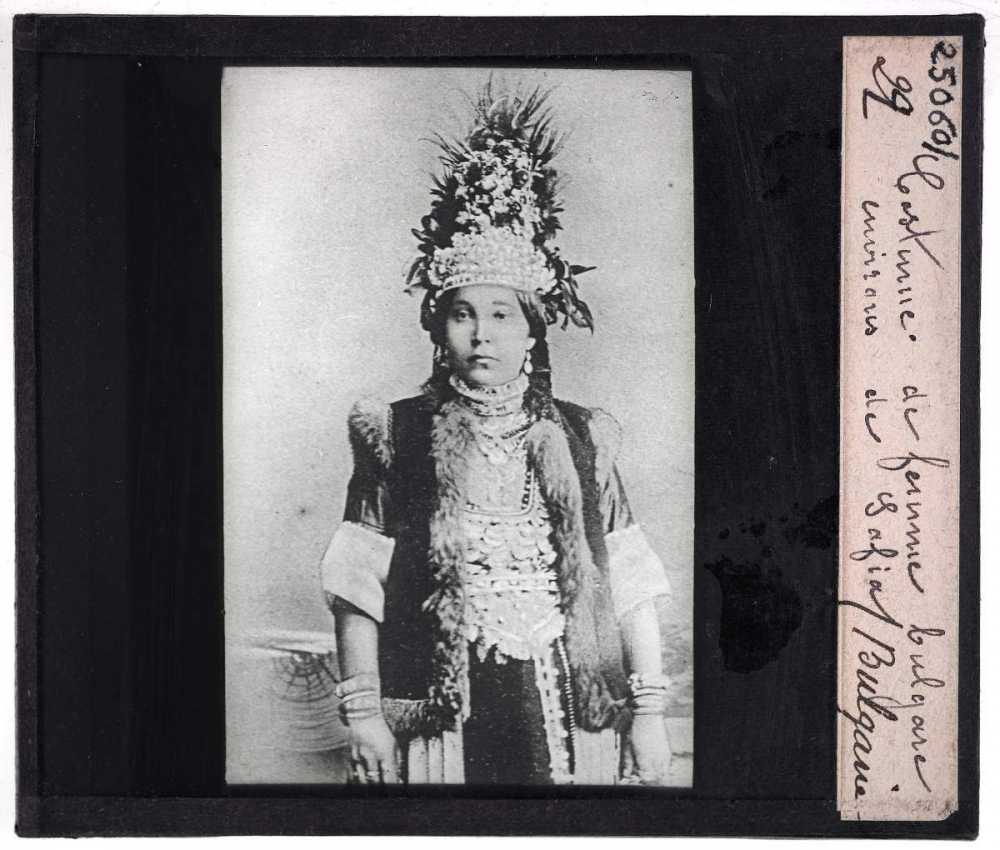 25060/
29
Costume de femme bulgare
environs de Safia / Bulgarie